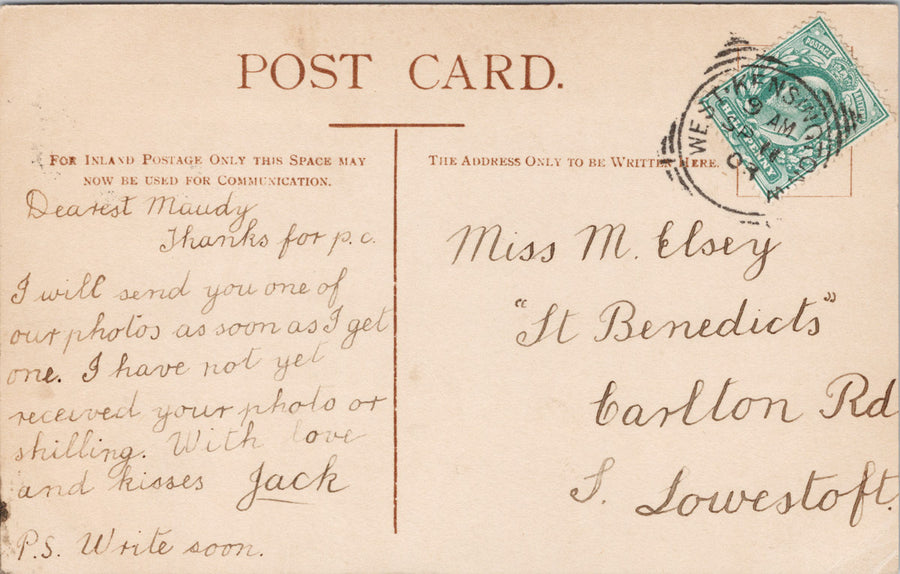 POST CARD.
FOR INLAND POSTAGE ONLY THIS SPACE MAY
NOW BE USED FOR COMMUNICATION.
Dearest Maudy
Thanks for p.c.
I will send you one of
our photos as soon as I get
one. I have not yet
received your photo or
shilling. With love
and kisses Jack
P.S. Write soon.
THE ADDRESS ONLY TO BE WRITTEN HERE.
Miss M. Elsey
"St Benedicts"
Carlton Rd
S. Lowestoft.
WEST KENSINGTON W
9 AM
SP 11
POSTAGE
HALFPENNY